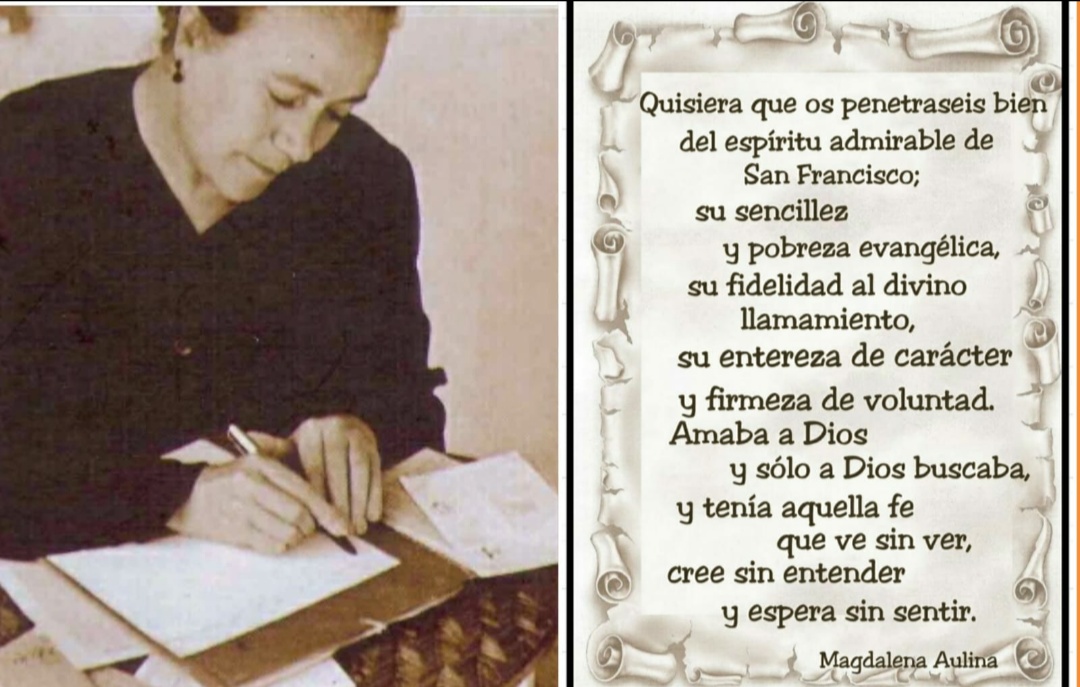 Quisiera que os penetraseis bien
del espíritu admirable de
San Francisco;
su sencillez
y pobreza evangélica,
su fidelidad al divino
llamamiento,
su entereza de carácter
y firmeza de voluntad.
Amaba a Dios
y sólo a Dios buscaba,
y tenía aquella fe
que ve sin ver,
cree sin entender
y espera sin sentir.
Magdalena Aulina